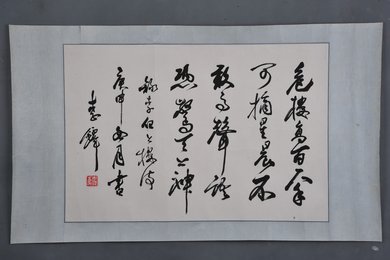 危樓高百尺手
可摘星辰不
敢高聲語
恐驚天上神
錄李白上樓詩
庚申月書
李鐸